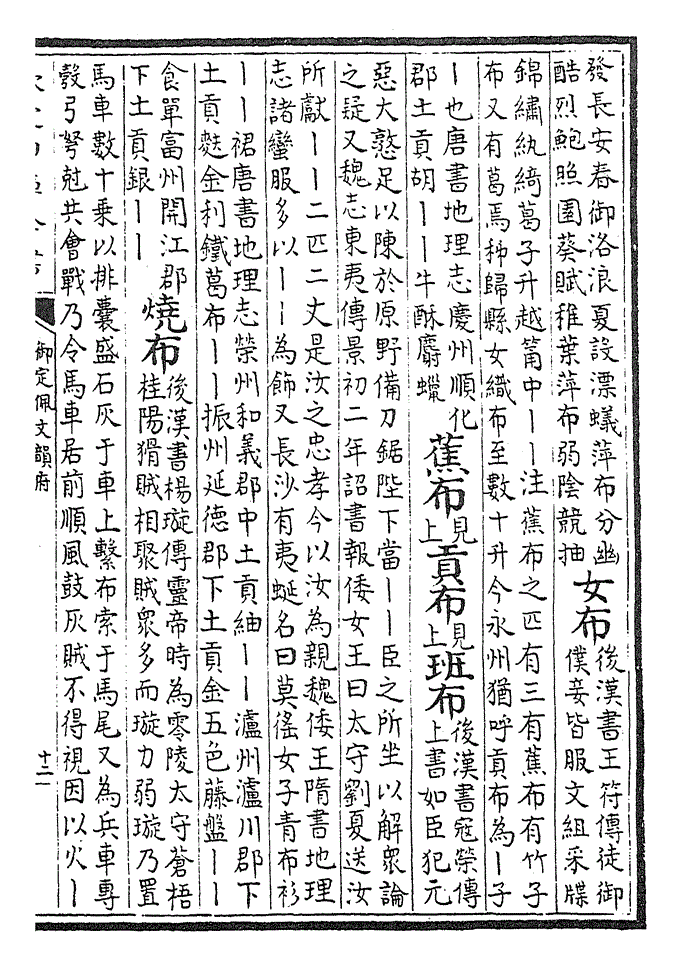 發長安春御洛浪夏設漂蟻萍布分幽
酷烈鮑照園葵賦稚葉萍布弱陰競抽
女布
後漢書王符傳徒御
僕妾皆服文組采牒
錦繡紈綺葛子升越筩中丨丨注蕉布之匹有三有蕉布有竹子
布又有葛焉秭歸縣女織布至數十升今永州猶呼貢布為丨子
丨也唐書地理志慶州順化
郡土貢胡丨丨牛酥麝蠟
蕉布
見上
貢布
見上
班布
後漢書寇榮傳
上書如臣犯元
惡大憝足以陳於原野備刀鋸陛下當丨丨臣之所坐以解衆論
之疑又魏志東夷傳景初二年詔書報倭女王曰太守劉夏送汝
所獻丨丨二匹二丈是汝之忠孝今以汝為親魏倭王隋書地理
志諸蠻服多以丨丨為飾又長沙有夷蜒名曰莫徭女子青布衫
丨丨裙唐書地理志榮州和義郡中土貢紬丨丨瀘州瀘川郡下
土貢麩金利鐵葛布丨丨振州延德郡下土貢金五色藤盤丨丨
食單富州開江郡
下土貢銀丨丨
燒布
後漢書楊璇傳靈帝時為零陵太守蒼梧
桂陽猾賊相聚賊衆多而璇力弱璇乃置
馬車數十乗以排囊盛石灰于車上繫布索于馬尾又為兵車專
彀弓弩尅共會戰乃令馬車居前順風鼓灰賊不得視因以火丨
御定佩文韻府
十二